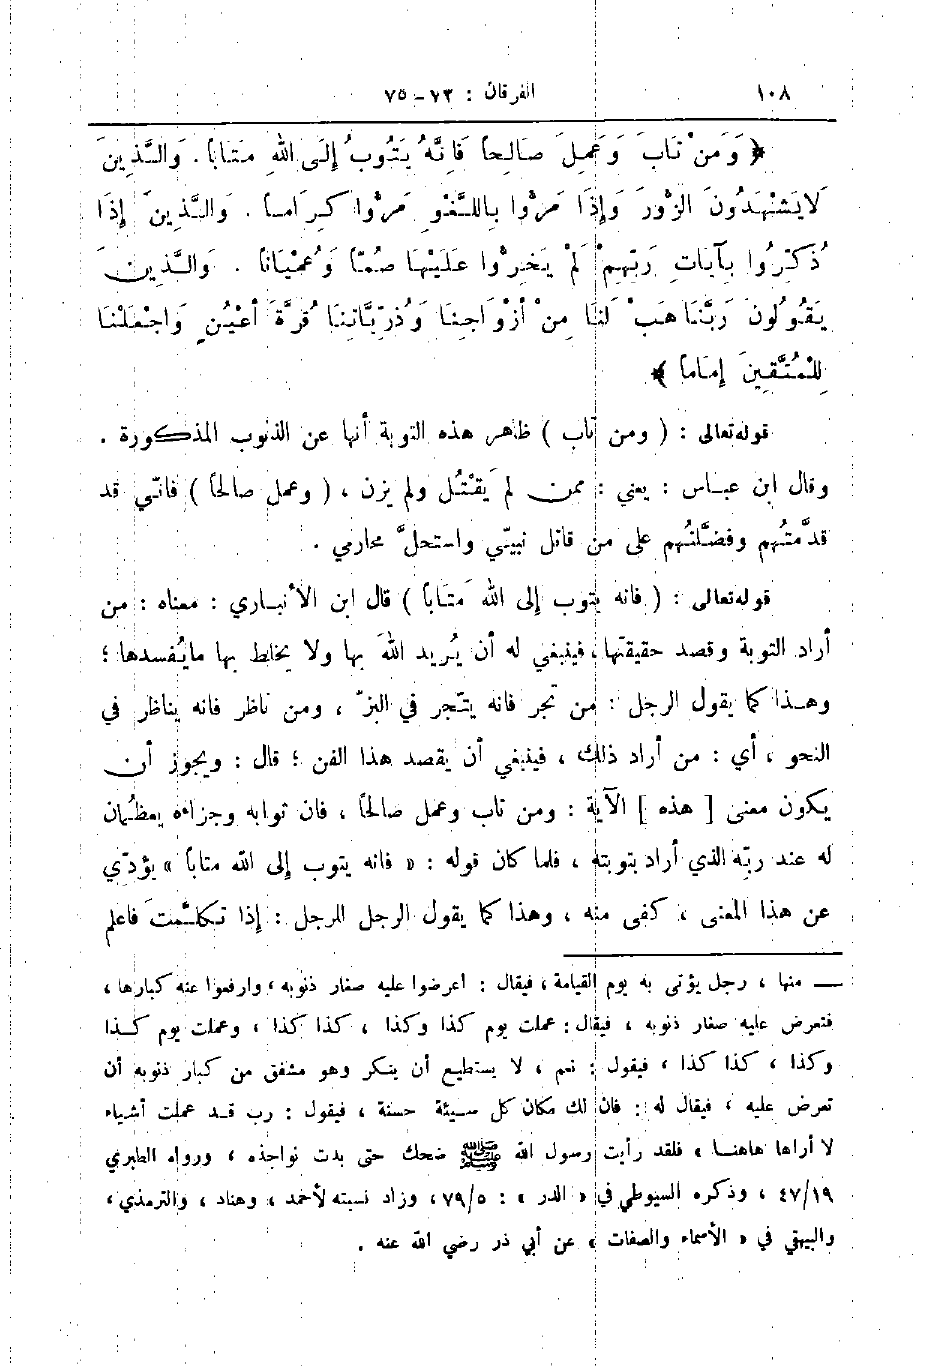 ١٠٨ الفرقان : ٧٣ - ٧٥
﴿ وَمَنْ تَابَ وَعَمِلَ صَالِحاً فَإِنَّهُ يَتُوبُ إِلَى اللهِ مَتَاباً . وَالَّذِينَ
لَا يَشْهَدُونَ الزُّورَ وَإِذَا مَرُّوا بِاللَّغْوِ مَرُّوا كِرَاماً . وَالَّذِينَ إِذَا
ذُكِّرُوا بِآيَاتِ رَبِّهِمْ لَمْ يَخِرُّوا عَلَيْهَا صُمّاً وَعُمْيَاناً . وَالَّذِينَ
يَقُولُونَ رَبَّنَا هَبْ لَنَا مِنْ أَزْوَاجِنَا وَذُرِّيَّاتِنَا قُرَّةَ أَعْيُنٍ وَاجْعَلْنَا
لِلْمُتَّقِينَ إِمَاماً ﴾
قوله تعالى : ( ومن تاب ) ظاهر هذه التوبة أنها عن الذنوب المذكورة .
وقال ابن عباس : يعني : ممن لم يَقْتُل ولم يزن ، ( وعمل صالحاً ) فانّي قد
قدَّمتُهم وفضَّلتُهم على من قاتل نبيّي واستحلَّ محارمي .
قوله تعالى : ( فانه يتوب إلى الله مَتَاباً ) قال ابن الأنباري : معناه : من
أراد التوبة وقصد حقيقتها ، فينبغي له أن يُريد اللهَ بها ولا يخلط بها مايُفسدها ؛
وهذا كما يقول الرجل : من تجر فانه يتّجر في البزّ ، ومن ناظر فانه يناظر في
النحو ، أي : من أراد ذلك ، فينبغي أن يقصد هذا الفن ؛ قال : ويجوز أن
يكون معنى [ هذه ] الآية : ومن تاب وعمل صالحاً ، فان ثوابه وجزاءه يعظُمان
له عند ربّه الذي أراد بتوبته ، فلما كان قوله : « فانه يتوب إلى الله متاباً » يؤدّي
عن هذا المعنى ، كفى منه ، وهذا كما يقول الرجل للرجل : إذا تكلَّمتَ فاعلم
— منها ، رجل يؤتى به يوم القيامة ، فيقال : اعرضوا عليه صغار ذنوبه ، وارفعوا عنه كبارها ،
فتعرض عليه صغار ذنوبه ، فيقال : عملت يوم كذا وكذا ، كذا كذا ، وعملت يوم كذا
وكذا ، كذا كذا ، فيقول : نعم ، لا يستطيع أن ينكر وهو مشفق من كبار ذنوبه أن
تعرض عليه ، فيقال له : فان لك مكان كل سيئة حسنة ، فيقول : رب قد عملت أشياء
لا أراها هاهنا » فلقد رأيت رسول الله ﷺ ضحك حتى بدت نواجذه ، ورواه الطبري
٤٧/١٩ ، وذكره السيوطي في « الدر » : ٧٩/٥ ، وزاد نسبته لأحمد ، وهناد ، والترمذي ،
والبيهقي في « الأسماء والصفات » عن أبي ذر رضي الله عنه .